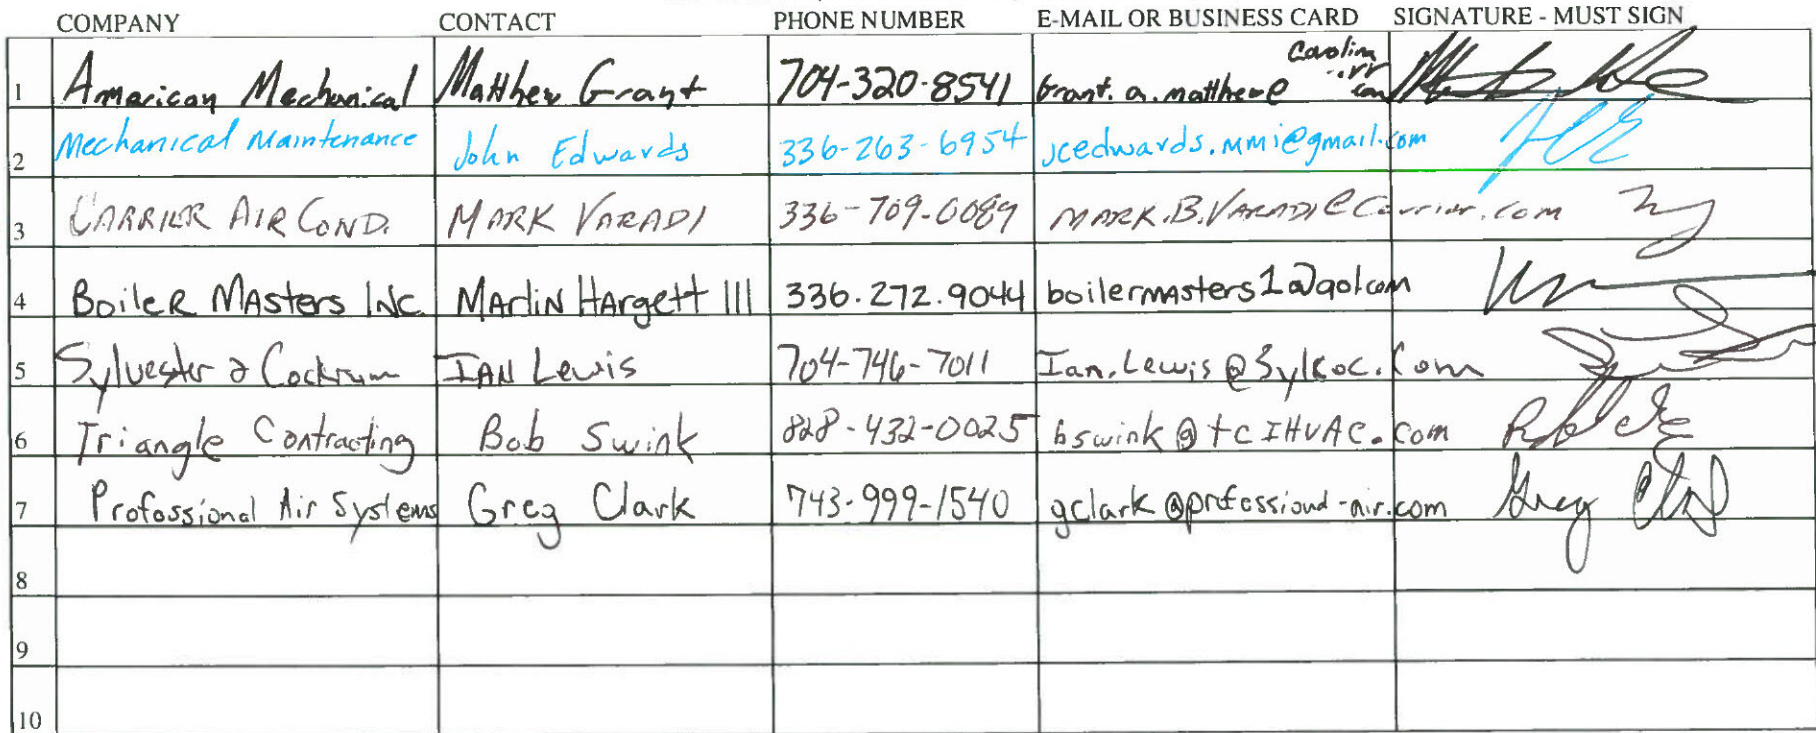 COMPANY CONTACT PHONE NUMBER E-MAIL OR BUSINESS CARD SIGNATURE - MUST SIGN
1 American Mechanical Matthew Grant 704-320-8541 Grant.a.matthew@ Carolina .rr com
2 Mechanical Maintenance John Edwards 336-263-6954 jcedwards.mmi@gmail.com JCE
3 CARRIER AIR COND. MARK VARADI 336-709-0089 MARK.B.VARADI@Carrier.com
4 BoileR MAsters INC. MArlin HArgett III 336.272.9044 boilermasters1@aol.com
5 Sylvester & Cockrum IAN Lewis 704-746-7011 Ian.Lewis@Sylkoc.Com
6 Triangle Contracting Bob Swink 828-432-0025 bswink@tcIHVAC.com
7 Professional Air Systems Greg Clark 743-999-1540 gclark@professional-air.com Greg Clark
8
9
10